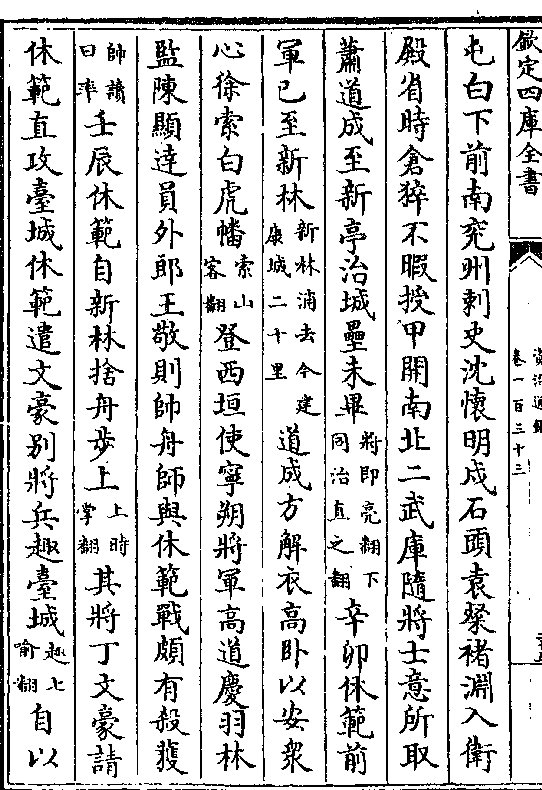 欽定四庫全書
資治通鑑
卷一百三十三
屯白下前南兖州刺史沈懷明戍石頭袁粲褚淵入衛
殿省時倉猝不暇授甲開南北二武庫隨將士意所取
蕭道成至新亭治城壘未畢將即亮翻下同治直之翻辛卯休範前
軍已至新林新林浦去今建康城二十里道成方解衣高卧以安衆
心徐索白虎幡索山客翻登西垣使寧朔將軍高道慶羽林
監陳顯逹員外郎王敬則帥舟師與休範戰頗有殺獲
帥讀曰率壬辰休範自新林捨舟步上上時掌翻其將丁文豪請
休範直攻臺城休範遣文豪别將兵趣臺城趣七喻翻自以